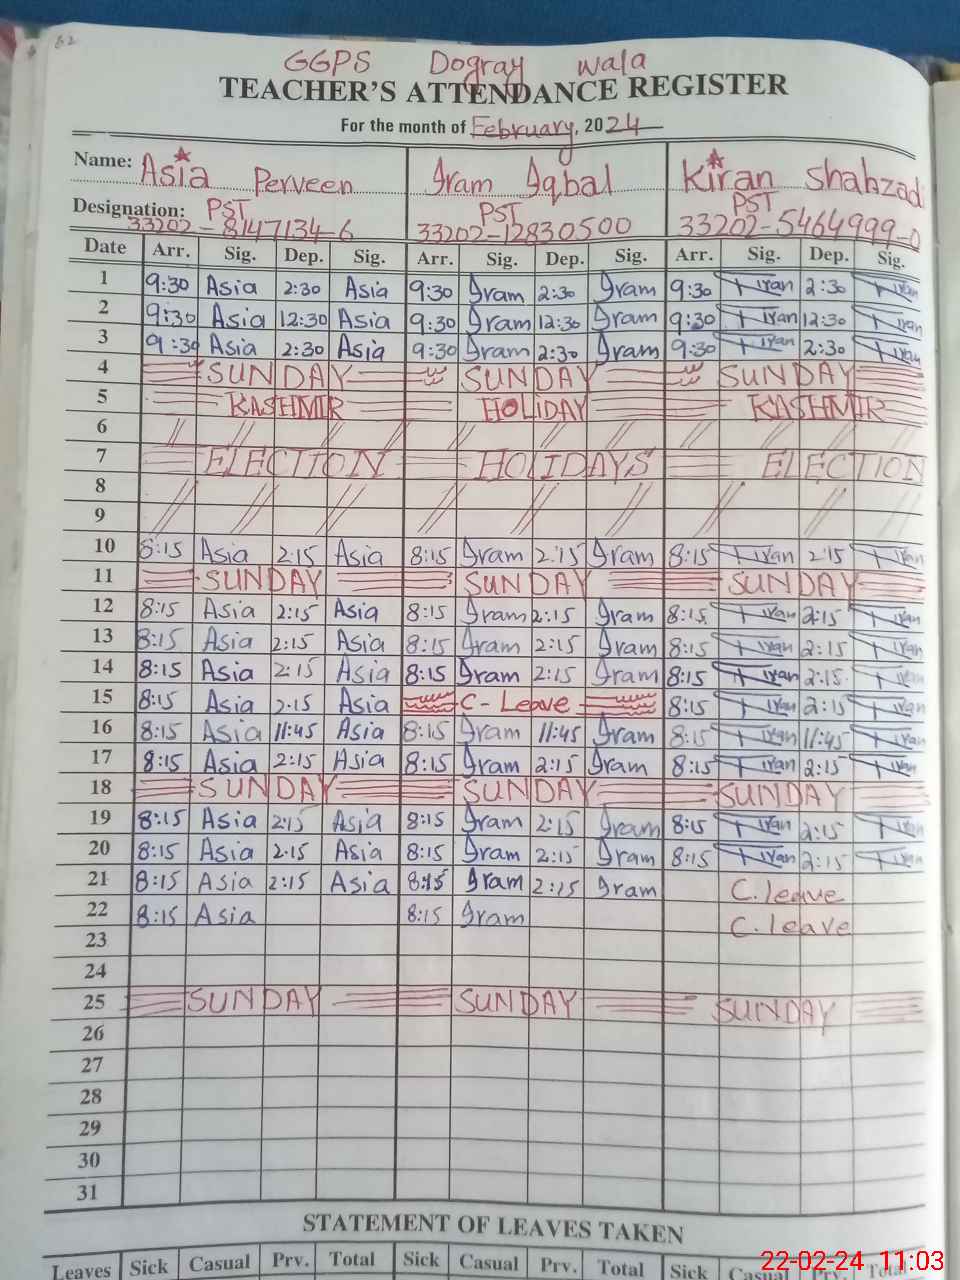 62
GGPS Dogray wala
TEACHER'S ATTENDANCE REGISTER
For the month of February, 2024
Name: Asia Perveen Iram Iqbal Kiran Shahzadi
Designation: PST PST PST
33202-8147134-6 33202-12830500 33202-5464999-0
Date Arr. Sig. Dep. Sig. Arr. Sig. Dep. Sig. Arr. Sig. Dep. Sig.
1 9:30 Asia 2:30 Asia 9:30 Iram 2:30 Iram 9:30 Kiran 2:30 Kiran
2 9:30 Asia 12:30 Asia 9:30 Iram 12:30 Iram 9:30 Kiran 12:30 Kiran
3 9:30 Asia 2:30 Asia 9:30 Iram 2:30 Iram 9:30 Kiran 2:30 Kiran
4 SUNDAY SUNDAY SUNDAY
5 KASHMIR HOLIDAY KASHMIR
6
7 ELECTION HOLIDAYS ELECTION
8
9
10 8:15 Asia 2:15 Asia 8:15 Iram 2:15 Iram 8:15 Kiran 2:15 Kiran
11 SUNDAY SUNDAY SUNDAY
12 8:15 Asia 2:15 Asia 8:15 Iram 2:15 Iram 8:15 Kiran 2:15 Kiran
13 8:15 Asia 2:15 Asia 8:15 Iram 2:15 Iram 8:15 Kiran 2:15 Kiran
14 8:15 Asia 2:15 Asia 8:15 Iram 2:15 Iram 8:15 Kiran 2:15 Kiran
15 8:15 Asia 2:15 Asia C-Leave 8:15 Kiran 2:15 Kiran
16 8:15 Asia 11:45 Asia 8:15 Iram 11:45 Iram 8:15 Kiran 11:45 Kiran
17 8:15 Asia 2:15 Asia 8:15 Iram 2:15 Iram 8:15 Kiran 2:15 Kiran
18 SUNDAY SUNDAY SUNDAY
19 8:15 Asia 2:15 Asia 8:15 Iram 2:15 Iram 8:15 Kiran 2:15 Kiran
20 8:15 Asia 2:15 Asia 8:15 Iram 2:15 Iram 8:15 Kiran 2:15 Kiran
21 8:15 Asia 2:15 Asia 8:15 Iram 2:15 Iram C.leave
22 8:15 Asia 8:15 Iram C.leave
23
24
25 SUNDAY SUNDAY SUNDAY
26
27
28
29
30
31
STATEMENT OF LEAVES TAKEN
Leaves Sick Casual Prv. Total Sick Casual Prv. Total Sick Casual Prv. Total
22-02-24 11:03